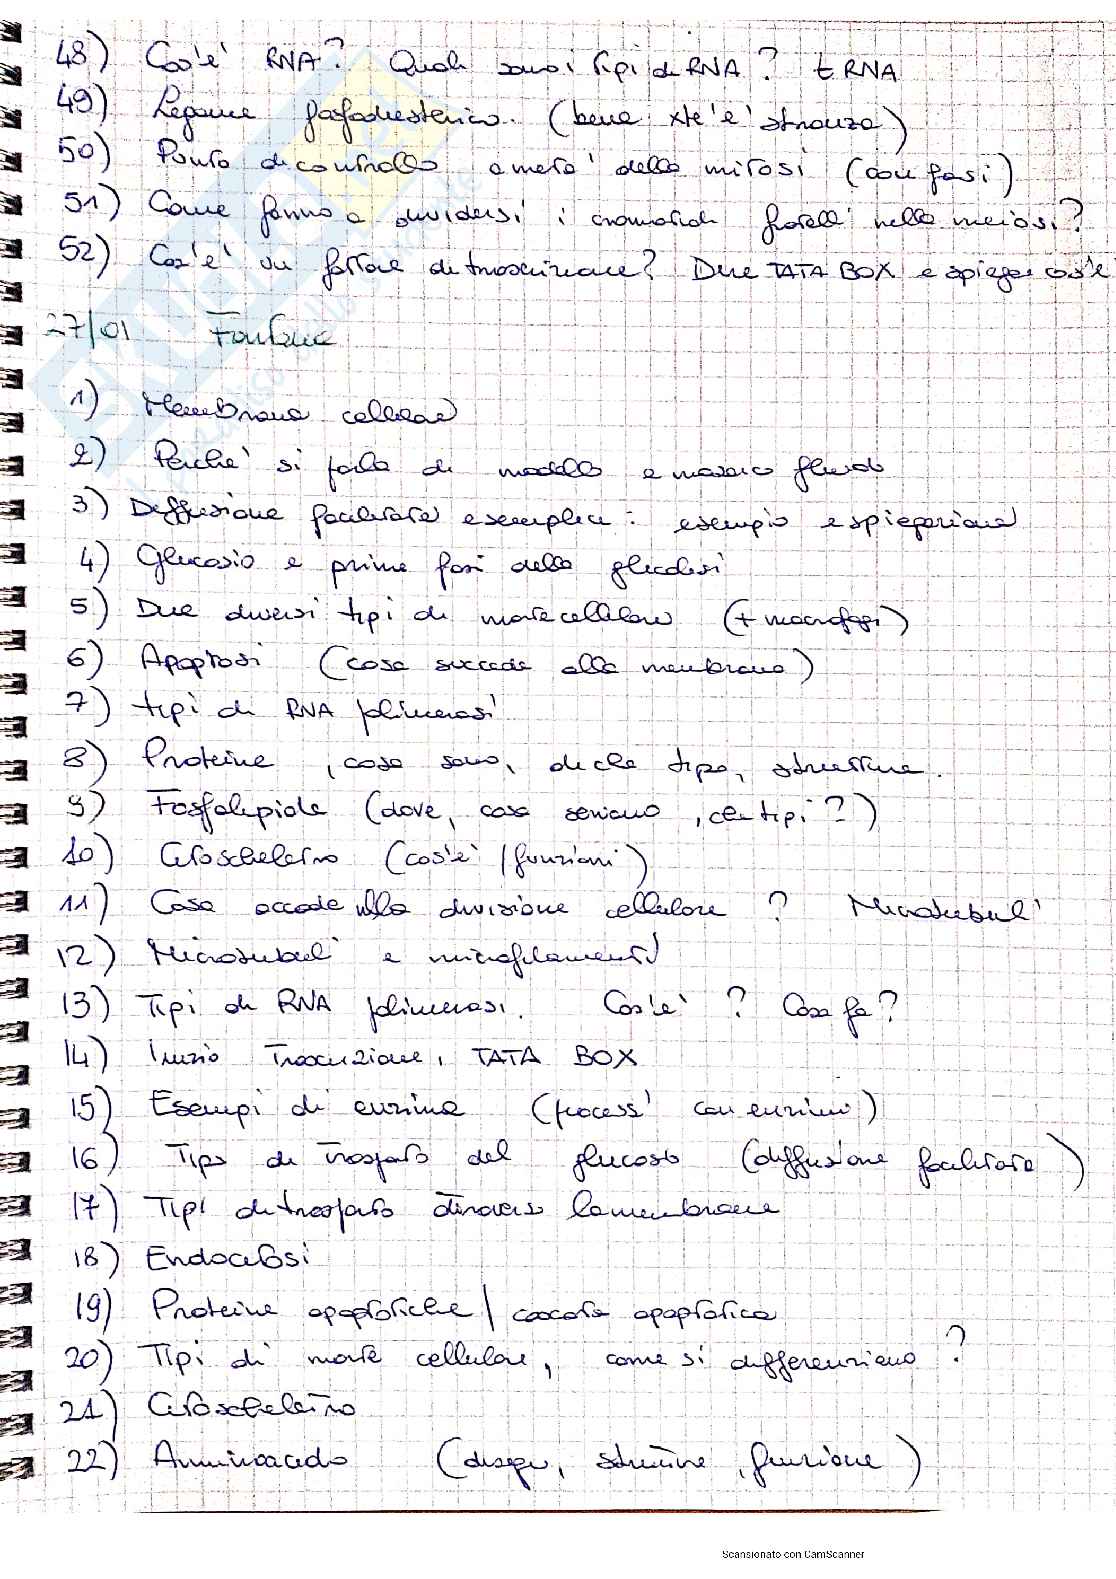 48) Cos'è RNA? Quali sono i tipi di RNA? tRNA
49) Legame fosfodiesterico. (bene xké è stronza)
50) Punto di controllo a metà della mitosi (con fasi)
51) Come fanno a dividersi i cromatidi fratelli nella meiosi?
52) Cos'è un fattore di trascrizione? Dire TATA BOX e spiegare cos'è
27/01 Fontana
1) Membrana cellulare
2) Perché si parla di modello a mosaico fluido
3) Diffusione facilitata e semplice: esempio e spiegazione
4) Glucosio e prime fasi della glicolisi
5) Due diversi tipi di morte cellulare (+ macrofagi)
6) Apoptosi (cosa succede alla membrana)
7) tipi di RNA polimerasi
8) Proteine, cosa sono, di che tipo, strutture.
9) Fosfolipide (dove, cosa servono, che tipi?)
10) Citoscheletro (cos'è / funzioni)
11) Cosa accade nella divisione cellulare? Microtubuli
12) Microtubuli e microfilamenti
13) Tipi di RNA polimerasi. Cos'è? Cosa fa?
14) Inizio Trascrizione, TATA BOX
15) Esempi di enzima (processi con enzimi)
16) Tipo di trasporto del glucosio (diffusione facilitata)
17) Tipi di trasporto attraverso la membrana
18) Endocitosi
19) Proteine apoptotiche / cascata apoptotica
20) Tipi di morte cellulare, come si differenziano?
21) Citoscheletro
22) Amminoacido (disegno, struttura, funzione)
Scansionato con CamScanner